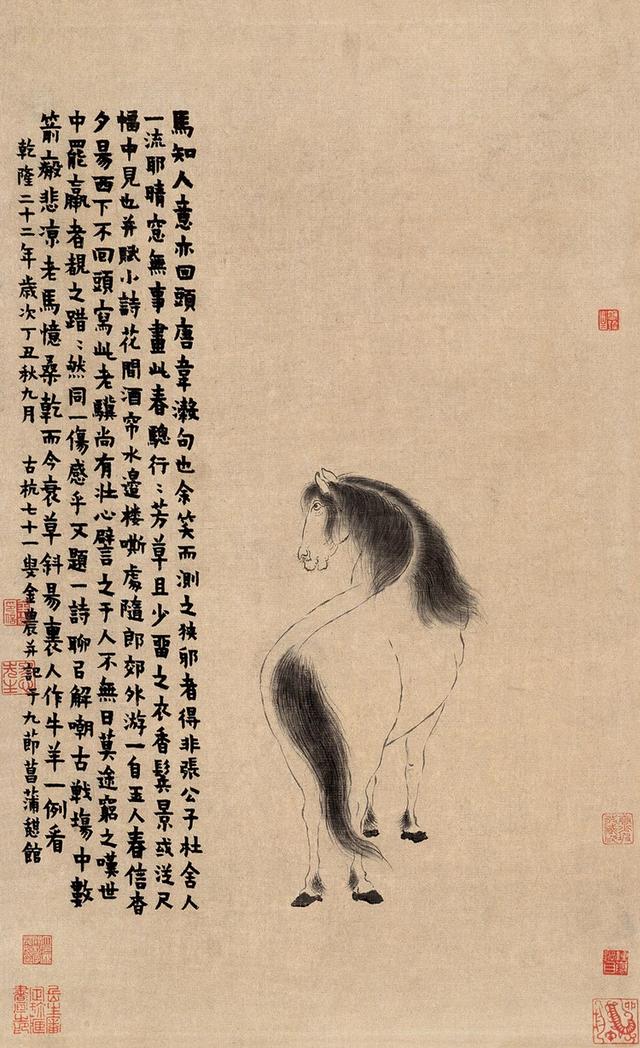 馬知人意亦回頭唐韋瀔句也余笑而測之狹邪者得非張公子杜舍人
一流耶晴窓無事畫此春驄行〻芳草且少畱之衣香鬓景或从尺
幅中見也并賦小詩花間酒帘水邉楼嘶處隨郎郊外游一自玉人春信杳
夕昜西下不回頭寫此老驥尚有壯心譬之于人不無日莫途竆之嘆世
中罷羸者覩之踖〻然同一傷感乎又題一詩聊㠯解嘲古戦塲中數
箭瘢悲凉老馬憶桑乾而今衰草斜昜裏人作牛羊一例看
乾隆二十二年歲次丁丑秋九月 古杭七十一叟金農并記于九節菖蒲憩館